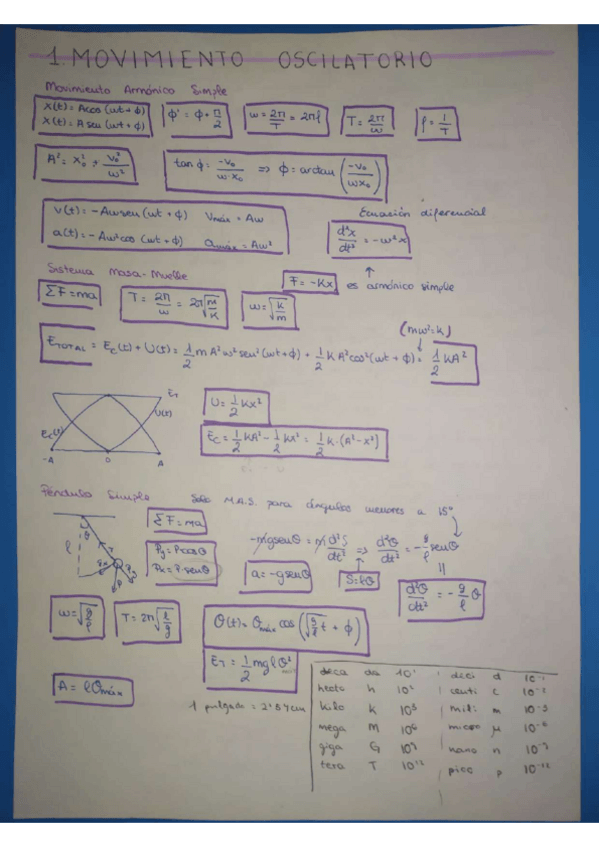 1. MOVIMIENTO OSCILATORIO
Movimiento Armónico Simple
x(t) = A cos (ωt + φ)
x(t) = A sen (ωt + φ)
φ' = φ + π/2
ω = 2π/T = 2πf
T = 2π/ω
f = 1/T
A² = x₀² + v₀²/ω²
tan φ = -v₀/(ω·x₀) => φ = arctan (-v₀/(ωx₀))
v(t) = -Aω sen (ωt + φ) Vmáx = Aω
a(t) = -Aω² cos (ωt + φ) amáx = Aω²
Ecuación diferencial
d²x/dt² = -ω²x
Sistema Masa-Muelle
F = -Kx es armónico simple
ΣF = ma
T = 2π/ω = 2π√(m/k)
ω = √(k/m)
(mω² = k)
ETOTAL = Ec(t) + U(t) = 1/2 m A²ω² sen² (ωt + φ) + 1/2 k A² cos² (ωt + φ) = 1/2 KA²
ET
U(t)
Ec(t)
-A 0 A
U = 1/2 Kx²
Ec = 1/2 KA² - 1/2 Kx² = 1/2 k · (A² - x²)
Péndulo Simple Solo M.A.S. para ángulos menores a 15°
ΣF = ma
Py = P cos θ
Px = P · sen θ
θ
l
P
-mg sen θ = m d²S/dt² => d²θ/dt² = -g/l sen θ
a = -g sen θ
S = lθ
d²θ/dt² = -g/l θ
ω = √(g/l)
T = 2π√(l/g)
θ(t) = θmáx cos (√(g/l) t + φ)
ET = 1/2 mglθ²
A = lθmáx
1 pulgada = 2'54cm
deca da 10¹ deci d 10⁻¹
hecto h 10² centi c 10⁻²
kilo K 10³ mili m 10⁻³
mega M 10⁶ micro μ 10⁻⁶
giga G 10⁹ nano n 10⁻⁹
tera T 10¹² pico p 10⁻¹²